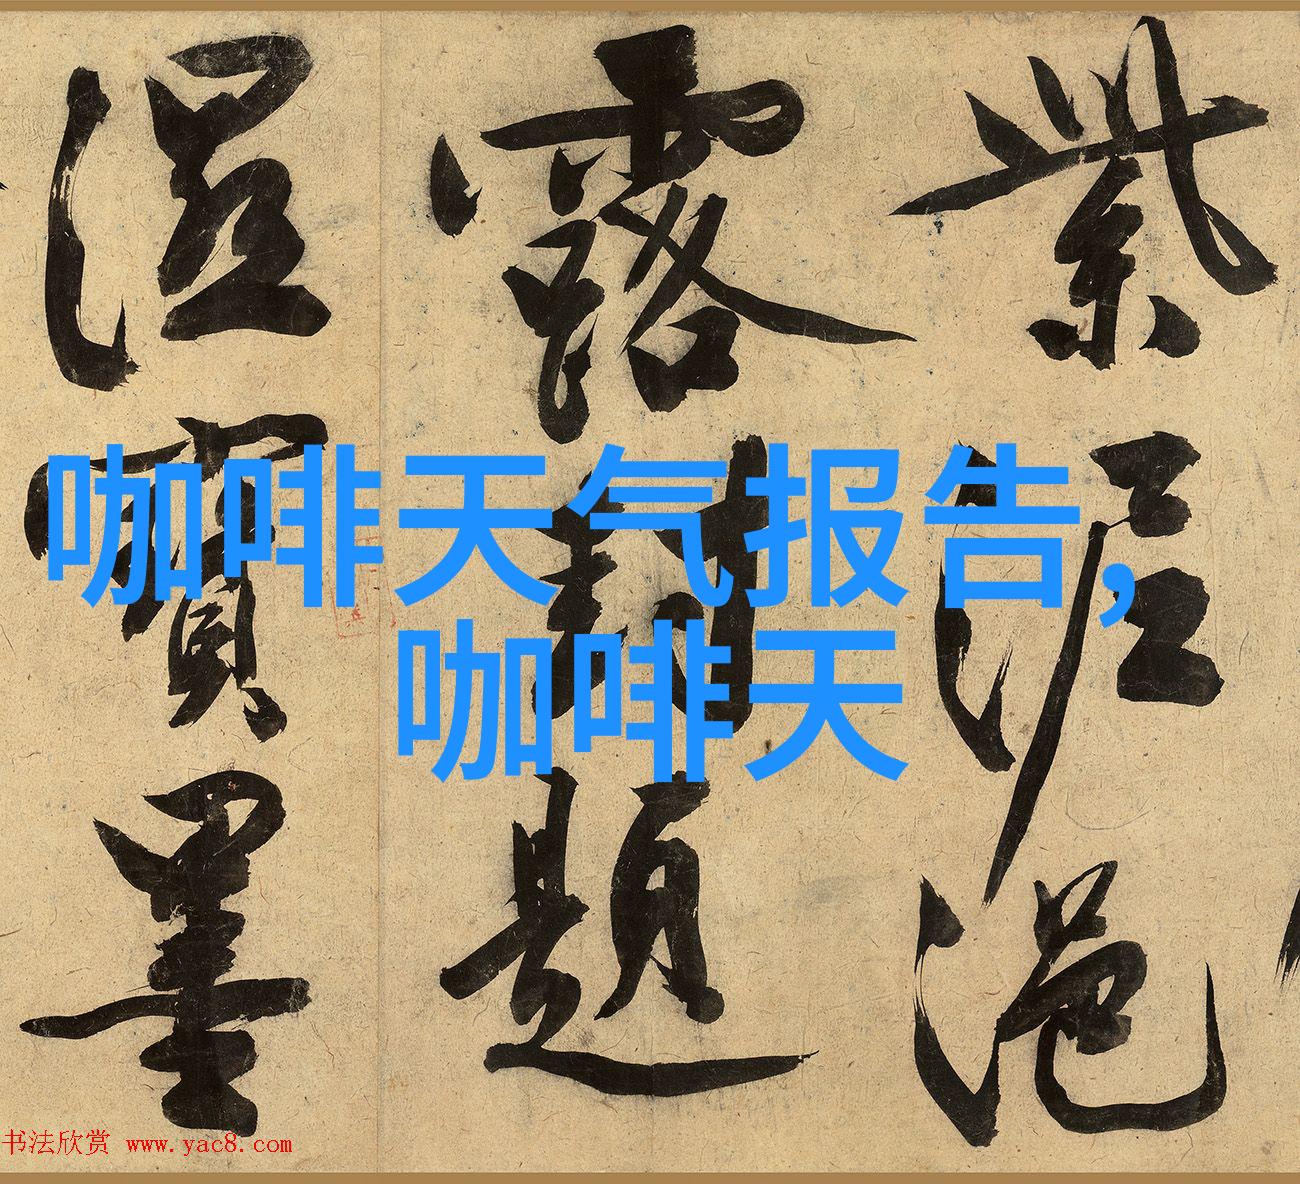 紫泥浥
露封題
濕寶墨
咖啡天气报告,
咖啡天
书法欣赏 www.yac8.com